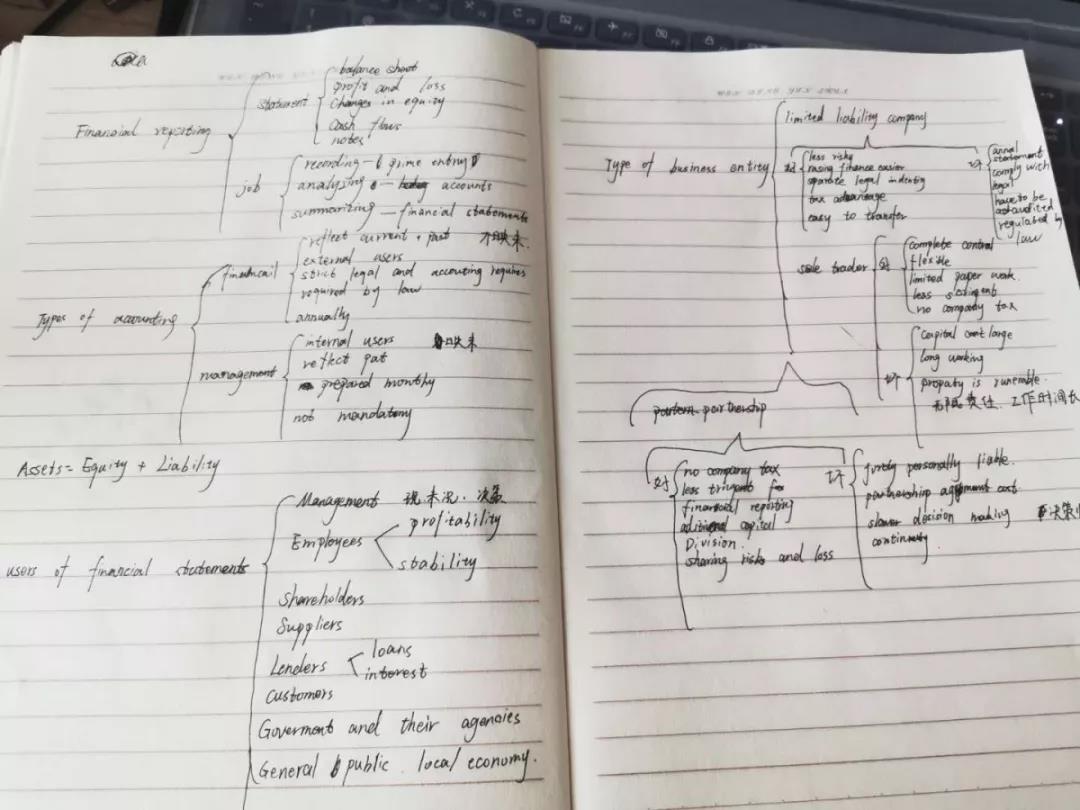 Financial reporting
statement
balance sheet
profit and loss
changes in equity
cash flows
notes
job
recording — prime entry
analysing — accounts
summarizing — financial statements
Types of accounting
financail
reflect current + past
external users
strict legal and accounting requires
required by law
annually
management
internal users
reflect pat
prepared monthly
not mandatory
Assets = Equity + Liability
users of financial statements
Management 现 未况. 决策
Employees
profitability
stability
Shareholders
Suppliers
Lenders
loans
interest
Customers
Goverment and their agencies
General public. local economy.
Type of business entity
limited liability company
好
less risky
rasing finance easier
separate legal indentity
tax advantage
easy to transfer
坏
annal
statement
comply with
legal
have to be
audited
regulated by
law
sole trader
好
complete control
flexible
limited paper work.
less stringent
no company tax
坏
capital cost large
long working
propaty is
无限责任. 工作时间长
partnership
好
no company tax
less tringent for
financial reporting
aditional capital
Division.
sharing risks and loss
坏
personally liable.
partnership agreement cost
slower decision making
continuety